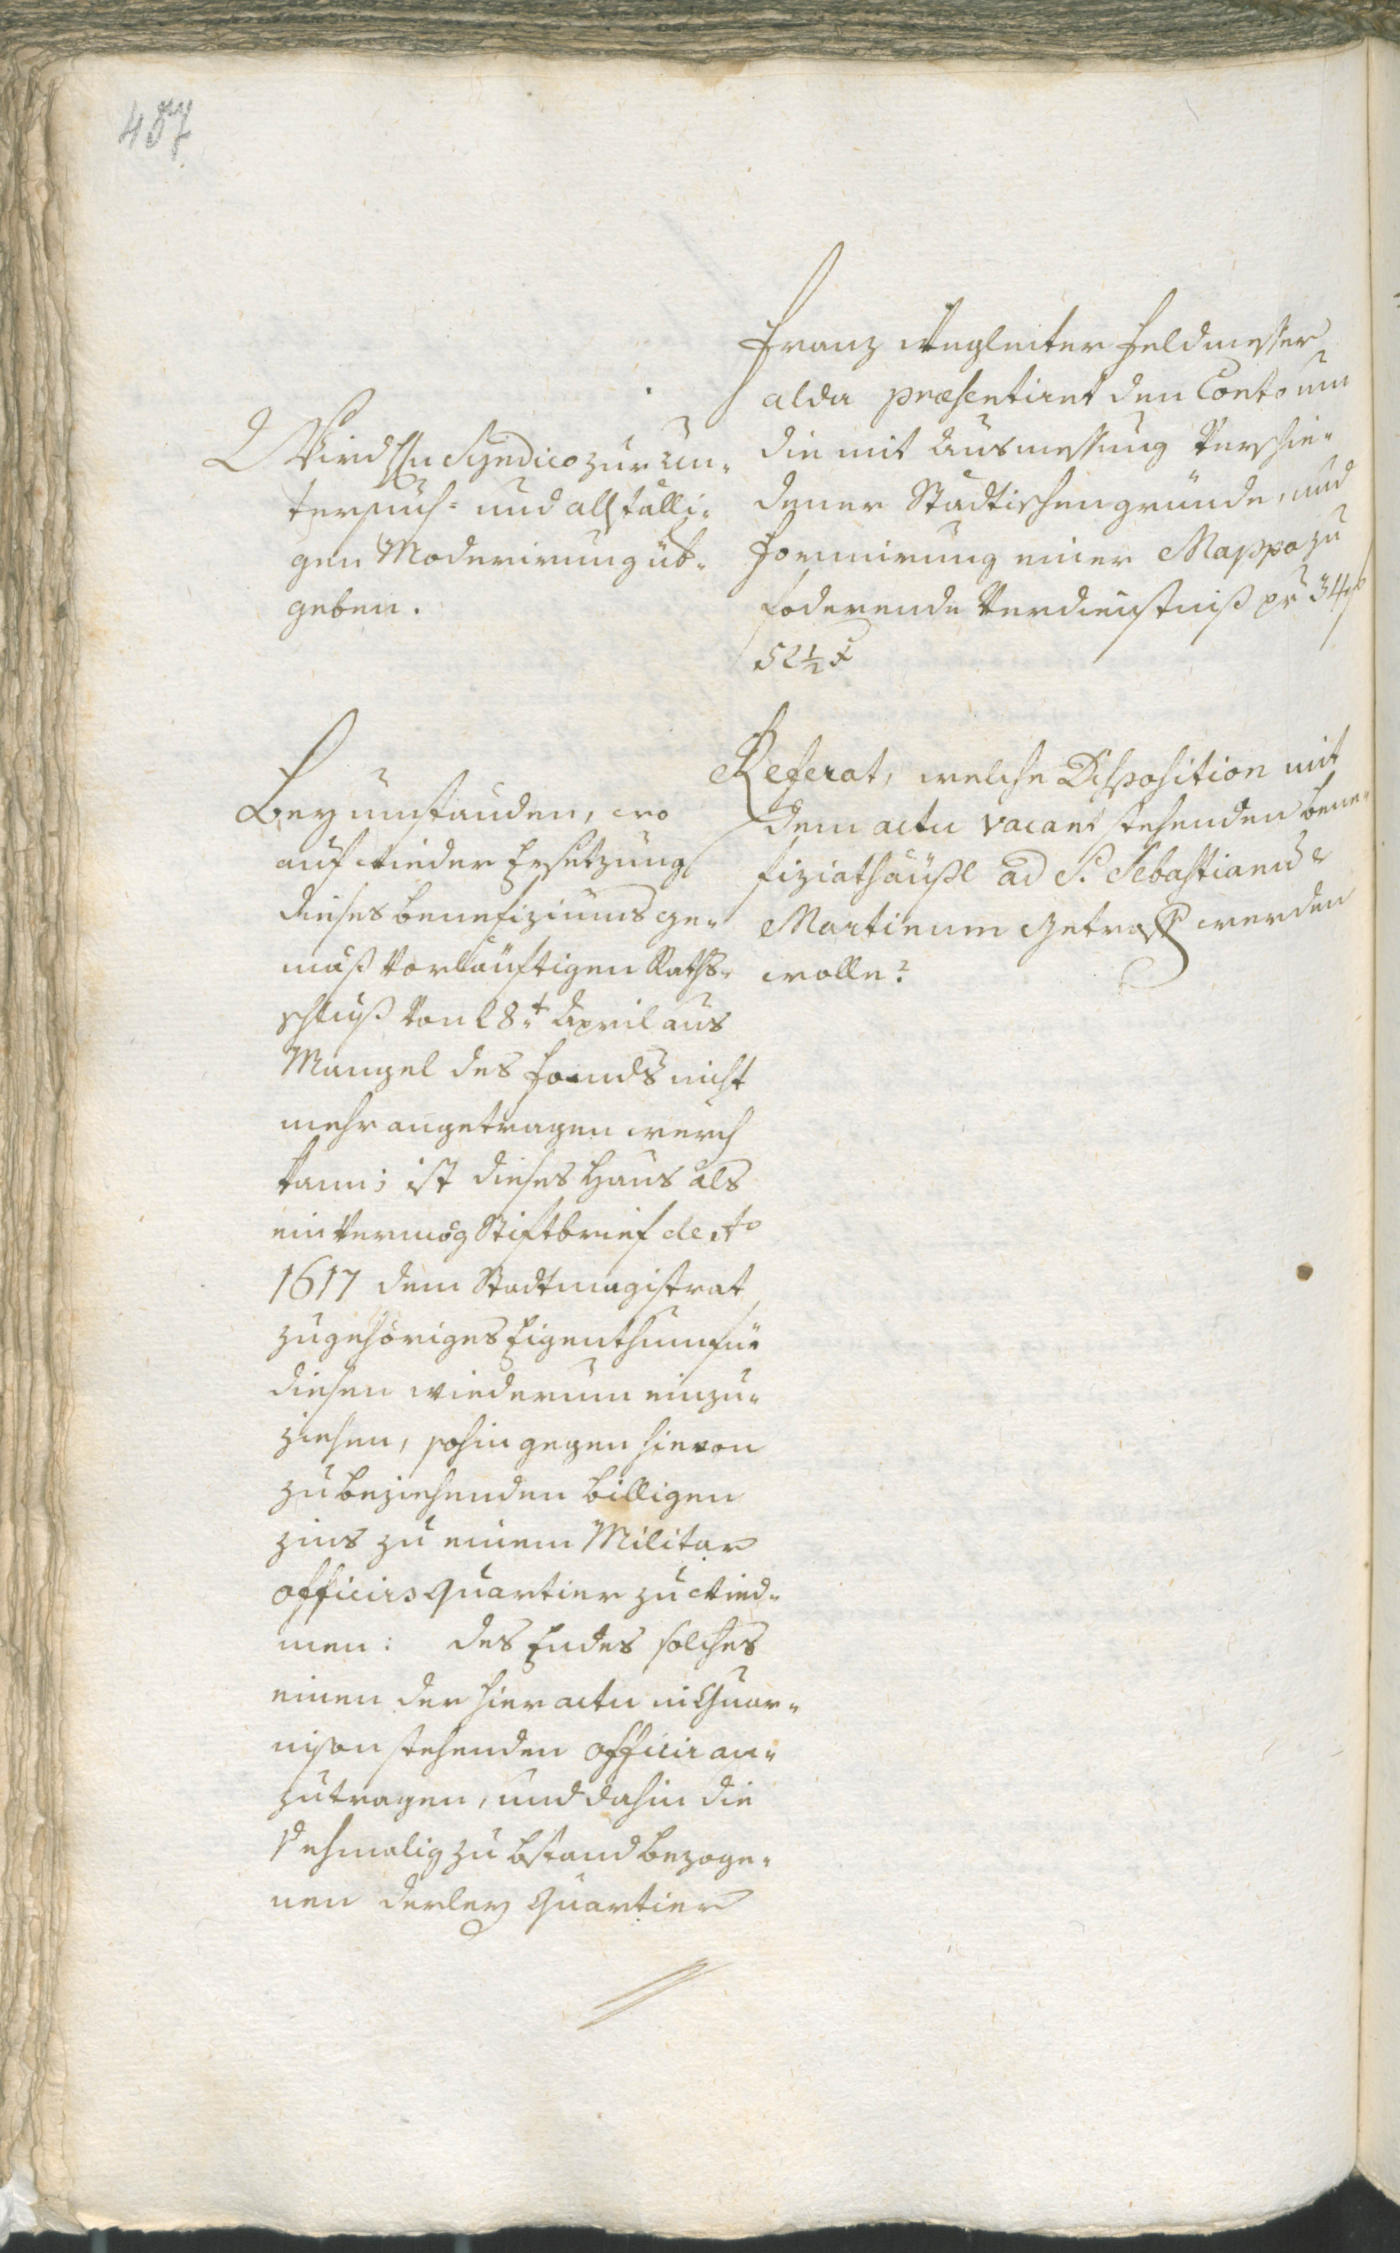 487
Franz Wegleiter Feldmesser
alda præsentiret den Conto um
die mit Ausmessung verschie-
dener Stadtischen gründe, und
Formirung einer Mappa zu
foderende Verdienstniß pr 34 f
52½ x
Wird Hn Syndico zur un-
tersuch- und allfälli-
gen Moderirung üb-
geben.
Referat, welche Disposition mit
dem actu vacant stehenden bene-
fiziathäußl ad S. Sebastianu &
Martinum getroff werden
wolle?
Bey umstanden, wo
auf wieder Ersetzung
dieses benefiziums ge-
mäß vorläuftigen Raths-
schluß von 28t April aus
Mangel des Fonds nicht
mehr angetragen werd
kann; ist dieses Haus als
ein vermög Stiftbrief de Ao
1617 dem Stadtmagistrat
zugehöriges Eigenthum für
diesen wiederum einzu-
ziehen, sohin gegen hievon
zu beziehenden billigen
zins zu einem Militar
officirs Quartier zu wied-
men: des Endes solches
einen der hier actu in Guar-
nison stehenden officir an-
zutragen, und dahin die
ehmalig zu bstand bezoge-
nen derley Quartier